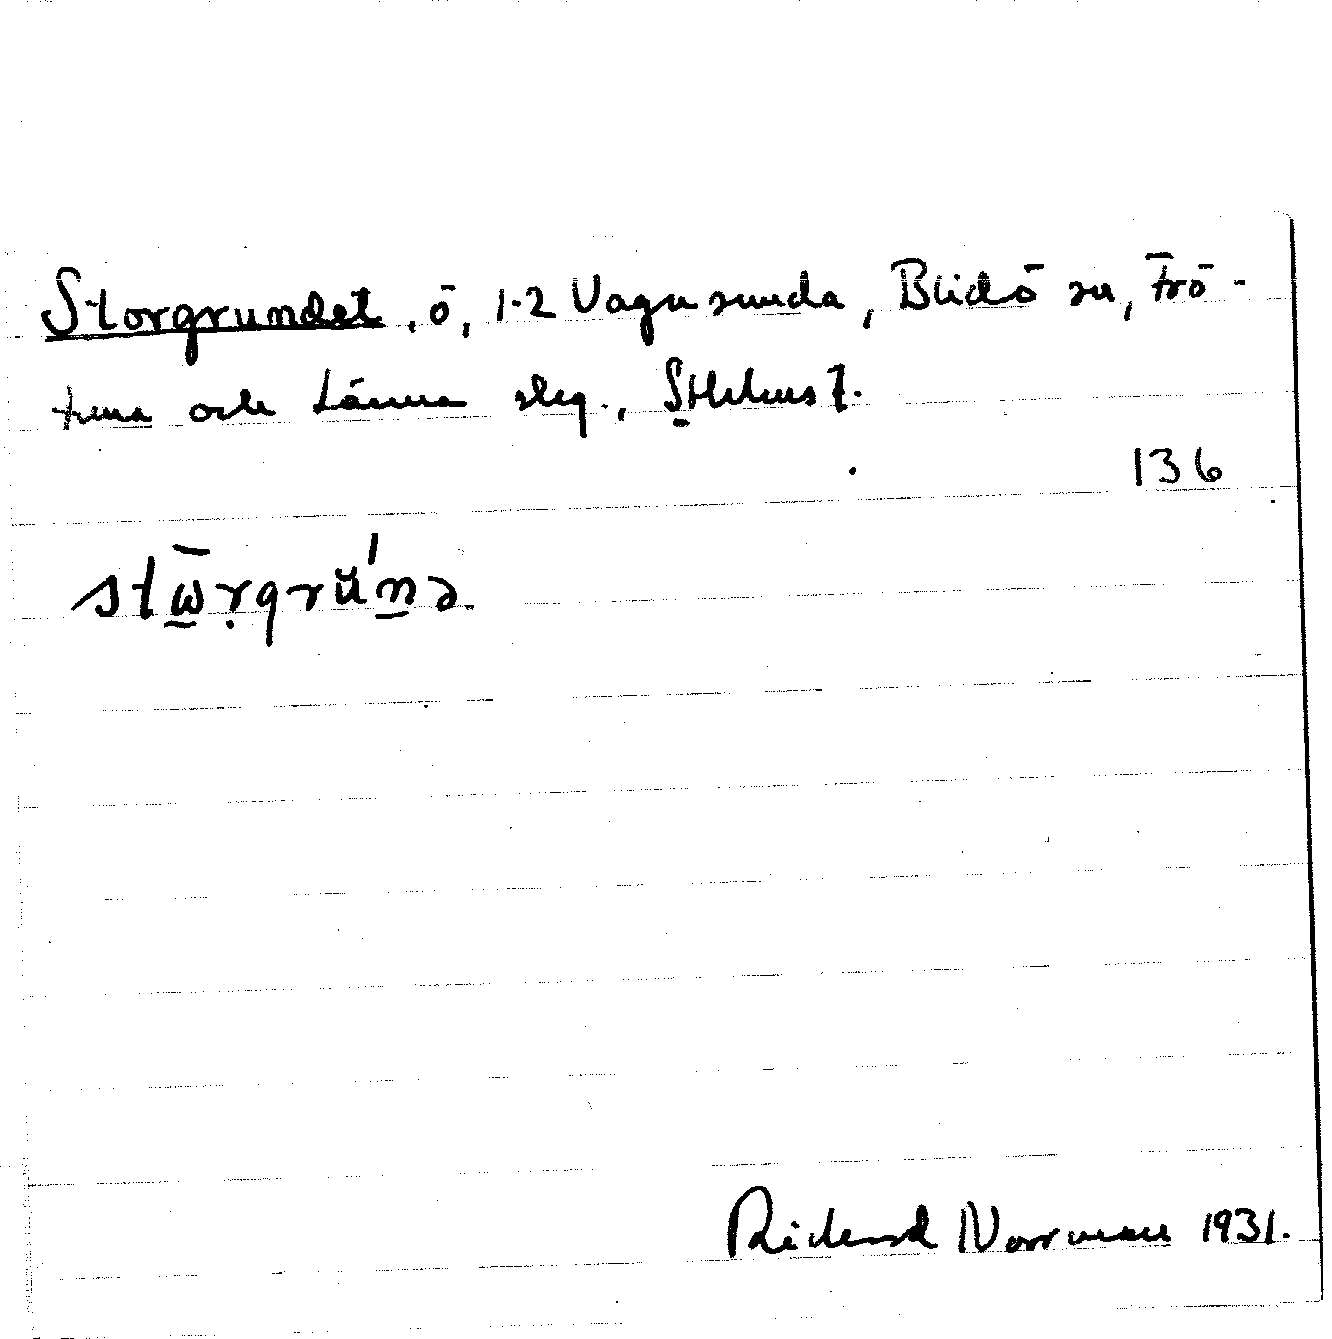 Storgrundet, ö, 1-2 Vagnsunda, Blidö sn, Frö-
tuna och Länna slg., Sthlms l.
136
stω̄rgrŭ'nə.
Rickard Norrman 1931.